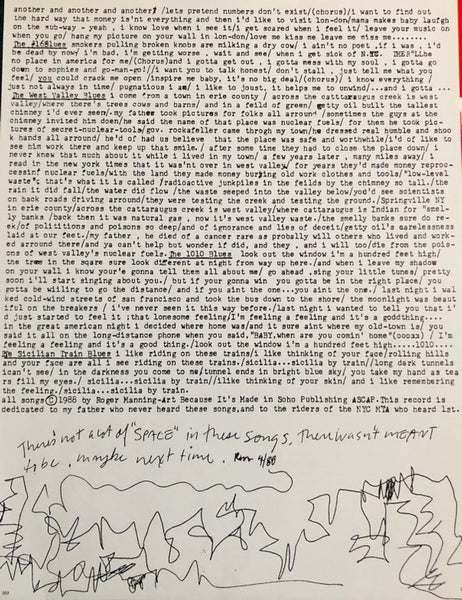 another and another and another/ /lets pretend numbers don't exist/(chorus)/i want to find out
the hard way that money is'nt everything and then i'd like to visit lon-don/mama makes baby laufgh
on the sub-way - yeah , i know love when i see it/i get scared when i feel it/ leave your music on
when you go/ hang my picture on your wall in lon-don/love me kiss me leave me miss me........
The #16Blues smokers pulling broken knobs/are milking a dry cow/ i ain't no poet ,if i was , i'd
be dead by now/ i'm bad, i'm getting worse , wait and see/ when i get sick of N.YC. THERE
no place in america for me/(Chorus)and i gotta get out , i gotta mess with my soul , i gotta go
down to sophies and go-nan-gol// i want you to talk honest/ don't stall , just tell me what you
feel/ you could crack me open /inspire me baby, it's no big deal/(chorus)/ i know everything /
just not always in time/ pugnatious i am/ i like to joust, it helps me to unwind/...and i gotta ...
The West Valley Blues i come from a town in erie county / across the cattaraugus creek in west
valley/where there's trees cows and barns/ and in a feild of green/ getty oil built the tallest
chimney i'd ever seen/.my father took pictures for folks all arround/ /sometime the guys at the
chimney invited him down/he said the name of that place was nuclear fuels/ for them he took pic-
tures of secret-nuclear-tools/gov. rockafeller came throgh my town/he dressed real humble and shoo
k hands all arround/ he'd of had us believe that the place was safe and worthwhile/i'd of like to
see him work there and keep up that smile./ after some time they had to close the place down/ i
never knew that much about it while i lived in my town/ a few years later , many miles away/ i
read in the new york times that it was'nt over in west valley/ for years they'd made money reproc-
cessinf nuclear fuels/with the land they made money burying old work clothes and tools/"low-level
waste", that's what it is called /radioactive junkpiles in the feilds by the chimney so tall./the
rain it did fall/the water did flow /the waste seeped into the valley below/yod'd see scientists
on back roads driving arround/they were testing the creek and testing the ground./Springville NY
in erie county/across the cattaraugus creek is west valley/where cattaraugus is Indian for "smel-
ly banks /back then it was natural gas , now it's west valley waste./the smelly banks sure do re
ek/of polititions and poisons so deep/and of ignorance and lies of deceit/getty oil's carelessness
laid at our feet./my father , he died of a cancer rare as probably will others who lived and work-
ed arround there/and ya can't help but wonder if did, and they . and i will too/die from the pois-
ons of west valley's nuclear fuels. The 1010 Blues look out the window i'm a hundred feet high/
the trees in the sqare sure look different at night from way up here./and when i leave my shadow
on your wall i know your'e gonna tell them all about me/ go ahead ,sing your little tunes/ pretty
soon i'll start singing about you./ but if your gonna win you gotta be in the right place/ you
gotta be willing to go the distance/ and if you aint the one...you aint the one. last night i wal
ked cold-wind streets of san francisco and took the bus down to the shore/ the moonlight was beaut
iful on the breakers / i've never seen it this way before./last night i wanted to tell you that i'd
d just started to feel it :that lonesome feeling/I'm feeling a feeling and it's a goodthing...
in the great american night i decided where home was/and it sure aint where my old-town is/ you
said it all on the long-distance phone when you said,"BABY.when are you comin' home"(ooxx) / I'm
feeling a feeling and it's a good thing./look out the window i'm a hundred feet high.....1010....
The Sicilian Train Blues i like riding on these trains/i like thinking of your face/rolling hills
and your face are all i see riding on these trains./sicilia...sicily by train//long dark tunnels
ican't see/ in the darkness you come to me/tunnel ends in bright blue sky/ you take my hand as tea
rs fill my eyes./ sicilia...sicilia by train//ilike thinking of your skin/ and i like remembering
the feeling./sicilia...sicilia by train.
all songs©1988 by Roger Manning-Art Because It's Made in Soho Publishing ASCAP.This record is
dedicated to my father who never heard these songs,and to the riders of the NYC MTA who heard 1st.
There's not a lot of "SPACE" in these songs, There wasn't MEANT
to be, maybe next time. Rm 4/88